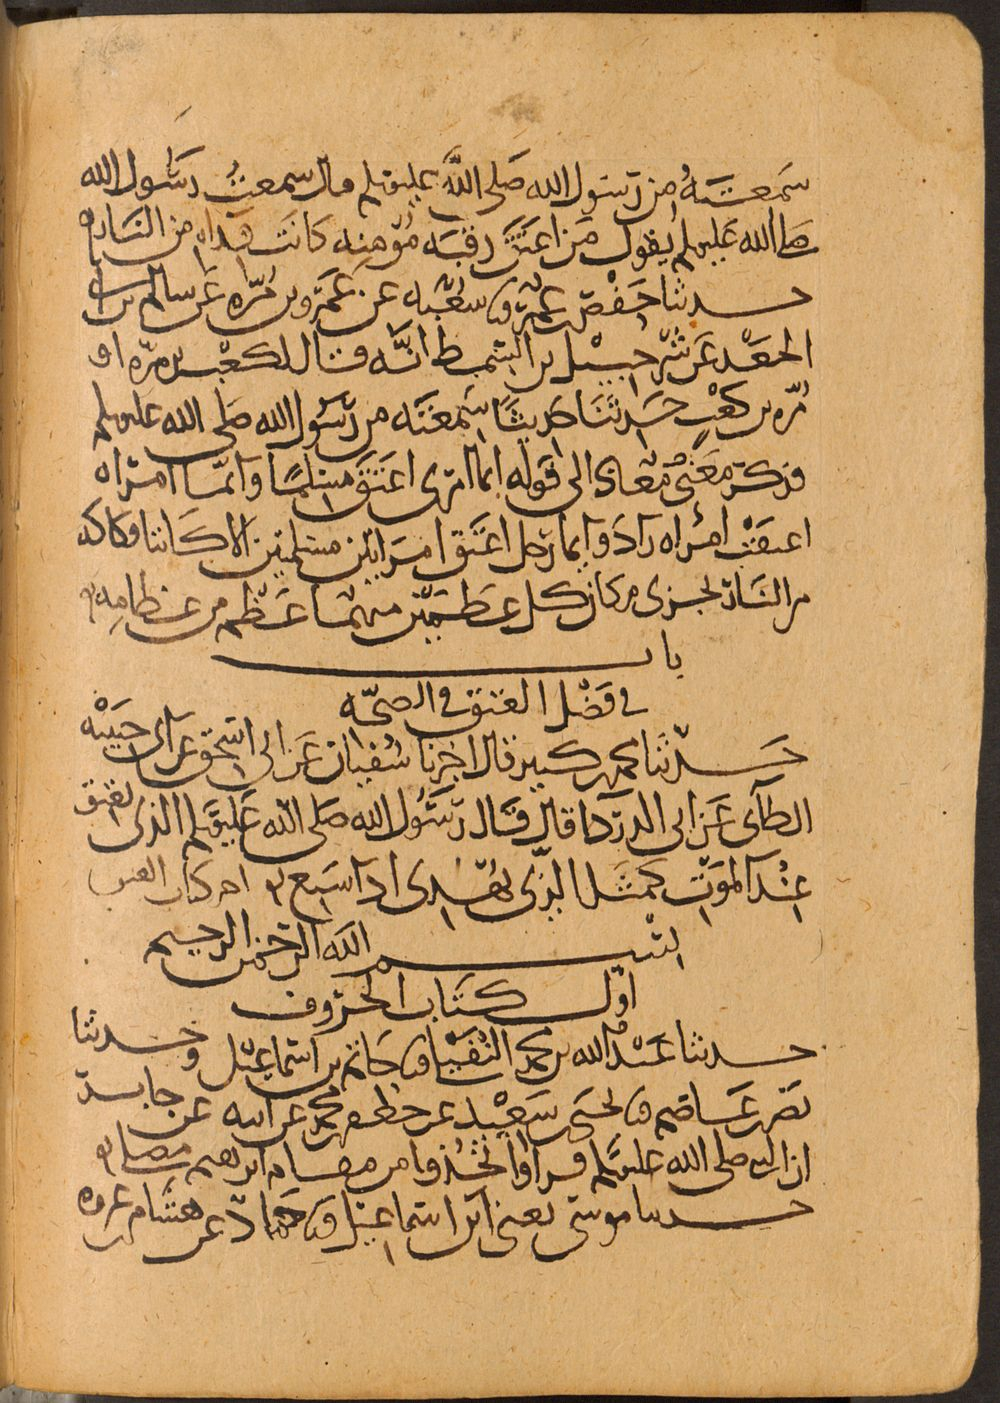 سمعته من رسول الله صلى الله عليه وسلم قال سمعت رسول الله
صلى الله عليه وسلم يقول من اعتق رقبه مؤمنه كانت فداه من النار
حدثنا حفص بن عمر نا شعبه عن عمرو بن مره عن سالم بن ابي
الجعد عن شرحبيل بن السمط انه قال لكعب بن مره او
مره بن كعب حدثنا حديثا سمعته من رسول الله صلى الله عليه وسلم
فذكر معنى معاذ الى قوله ايما امرى اعتق مسلما وايما امراه
اعتقت امراه زاد وايما رجل اعتق امراتين مسلمتين الا كانتا فكاكه
من النار يجزى مكان كل عظمين منهما عظم من عظامه
باب
في فضل العتق في الصحه
حدثنا محمد بن كثير قال اخبرنا سفيان عن ابي اسحق عن ابي حبيبه
الطآي عن ابي الدردآ قال قال رسول الله صلى الله عليه وسلم مثل الذي يعتق
عند الموت كمثل الذي يهدى اذا شبع اخر كتاب العتق
بسم الله الرحمن الرحيم
اول كتاب الحروف
حدثنا عبد الله بن محمد النفيلي نا حاتم بن اسماعيل وحدثنا
نصر بن عاصم نا يحيى بن سعيد عن جعفر بن محمد عن ابيه عن جابر
ان النبي صلى الله عليه وسلم قرا واتخذوا من مقام ابرهيم مصلى
حدثنا موسى يعني ابن اسماعيل نا حماد عن هشام بن عروه